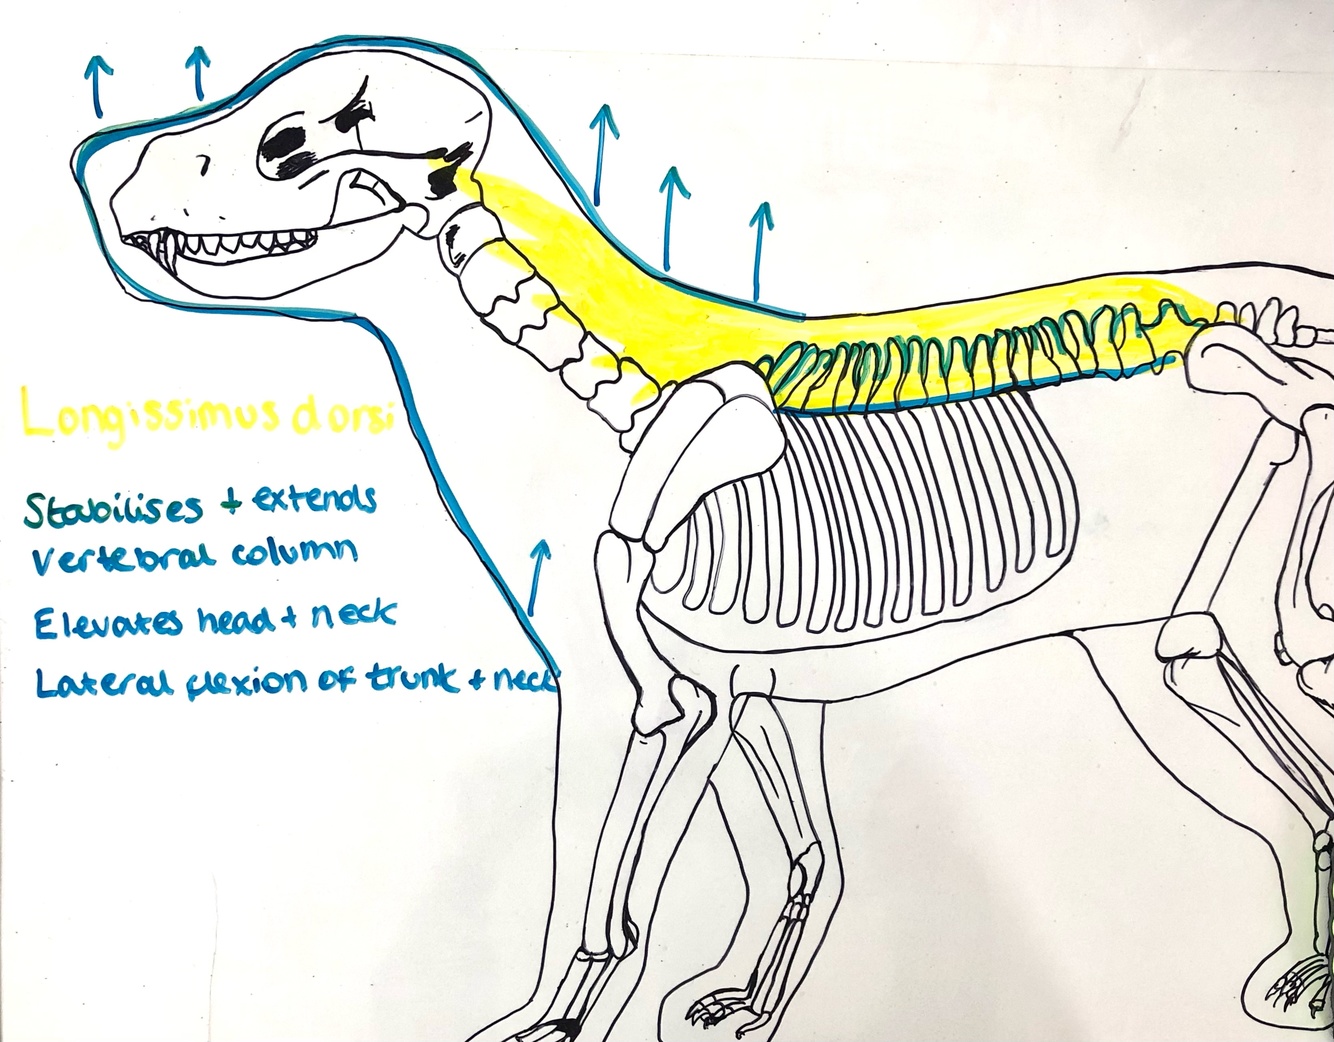 Longissimus dorsi
Stabilises + extends
Vertebral column
Elevates head + neck
Lateral flexion of trunk + neck